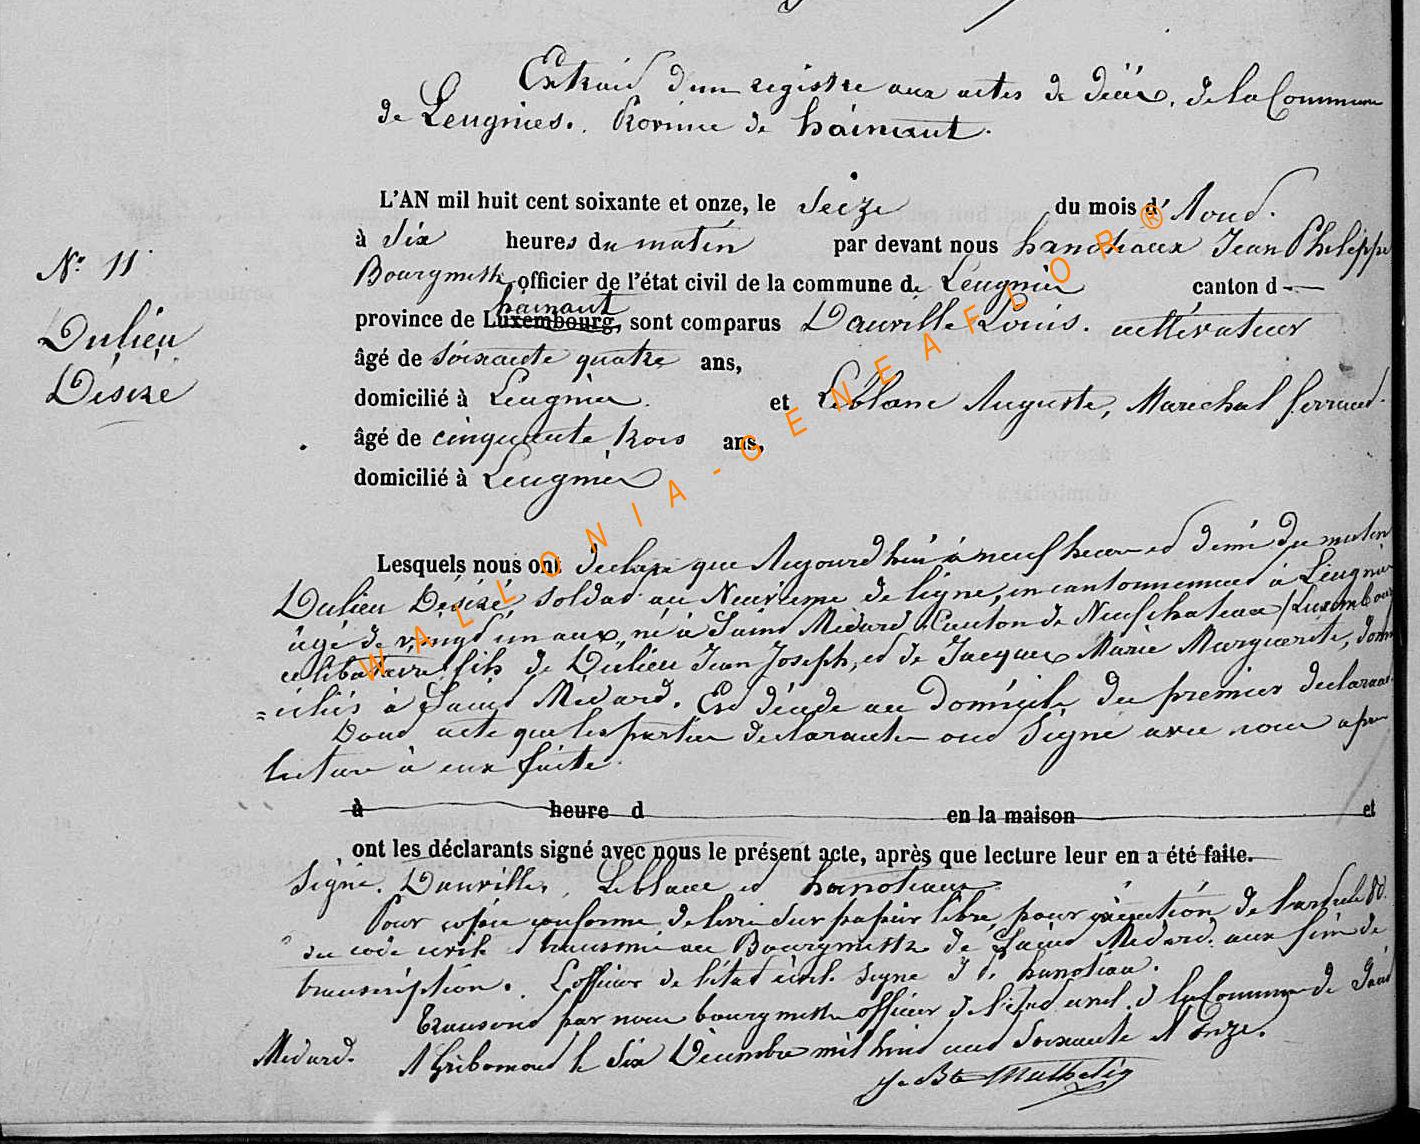 Extrait d'un registre aux actes de décès, de la Commune
de Leugnies. Province de hainaut.
L'AN mil huit cent soixante et onze, le Seize du mois d' Aout.
à Six heures du matin par devant nous hanotiaux Jean Philippe
Bourgmestre officier de l'état civil de la commune de Leugnies canton d
hainaut
province de Luxembourg, sont comparus Dauville Louis. cultivateur
âgé de Soixante quatre ans,
domicilié à Leugnies. et Leblanc Auguste, Marechal ferrant.
âgé de cinquante trois ans,
domicilié à Leugnies
N° 11
Dulieu
Désiré
Lesquels nous ont déclaré que Aujourdhui à neuf heures et demi du matin
Dulieu Désiré, Soldat au Neuvième de ligne, en cantonnement à Leugnies
âgé de vingt un ans, né à Saint Médard Canton de Neufchateau (Luxembourg
célibataire, fils de Dulieu Jean Joseph, et de Jacques Marie Marguerite, domi
=ciliés à Saint Médard. Est décédé au Domicile du premier déclarant.
Dont acte que les parties déclarantes ont Signé avec nous après
lecture à eux faite.
à heure d en la maison et
ont les déclarants signé avec nous le présent acte, après que lecture leur en a été faite.
Signé. Dauville, Leblanc et hanotiaux
Pour copie conforme délivré sur papier libre, pour exécution de l'article 80
du code civil transmis au Bourgmestre de Saint Médard. aux fins de
transcription. L'officier de l'état civil Signé J P. hanotiau.
Transcrit par nous bourgmestre officier de l'état civil de la Commune de Saint
Médard. A Gribomont le Six Décembre mil huit cent Soixante et Onze.
J. Bte Mathelin
WALLONIA-GENEAFLOR®